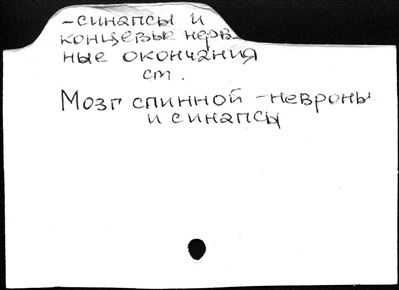 -синапсы и
концевые нерв-
ные окончания
см.
Мозг спинной -невроны
и синапсы